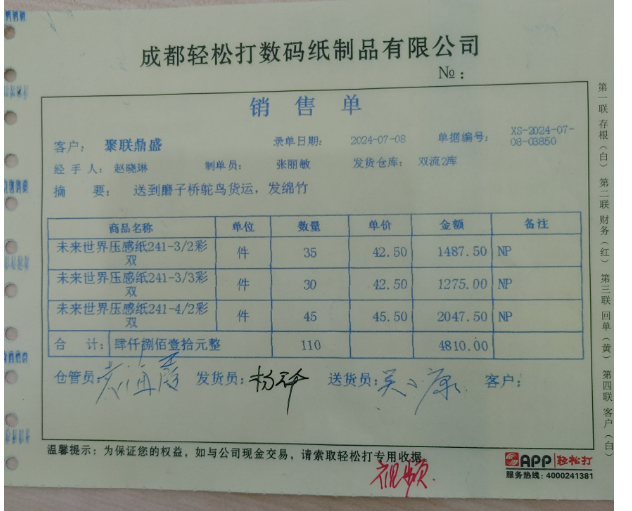 成都轻松打数码纸制品有限公司
№：
销售单
客户： 聚联鼎盛 录单日期： 2024-07-08 单据编号： XS-2024-07-08-03850
经手人： 赵晓琳 制单员： 张丽敏 发货仓库： 双流2库
摘 要： 送到磨子桥鸵鸟货运，发绵竹
商品名称 单位 数量 单价 金额 备注
未来世界压感纸241-3/2彩双 件 35 42.50 1487.50 NP
未来世界压感纸241-3/3彩双 件 30 42.50 1275.00 NP
未来世界压感纸241-4/2彩双 件 45 45.50 2047.50 NP
合 计： 肆仟捌佰壹拾元整 110 4810.00
仓管员： 发货员： 送货员： 客户：
温馨提示：为保证您的权益，如与公司现金交易，请索取轻松打专用收据。
视频
APP 轻松打
服务热线：4000241381
第一联 存根（白） 第二联 财务（红） 第三联 回单（黄） 第四联 客户（白）